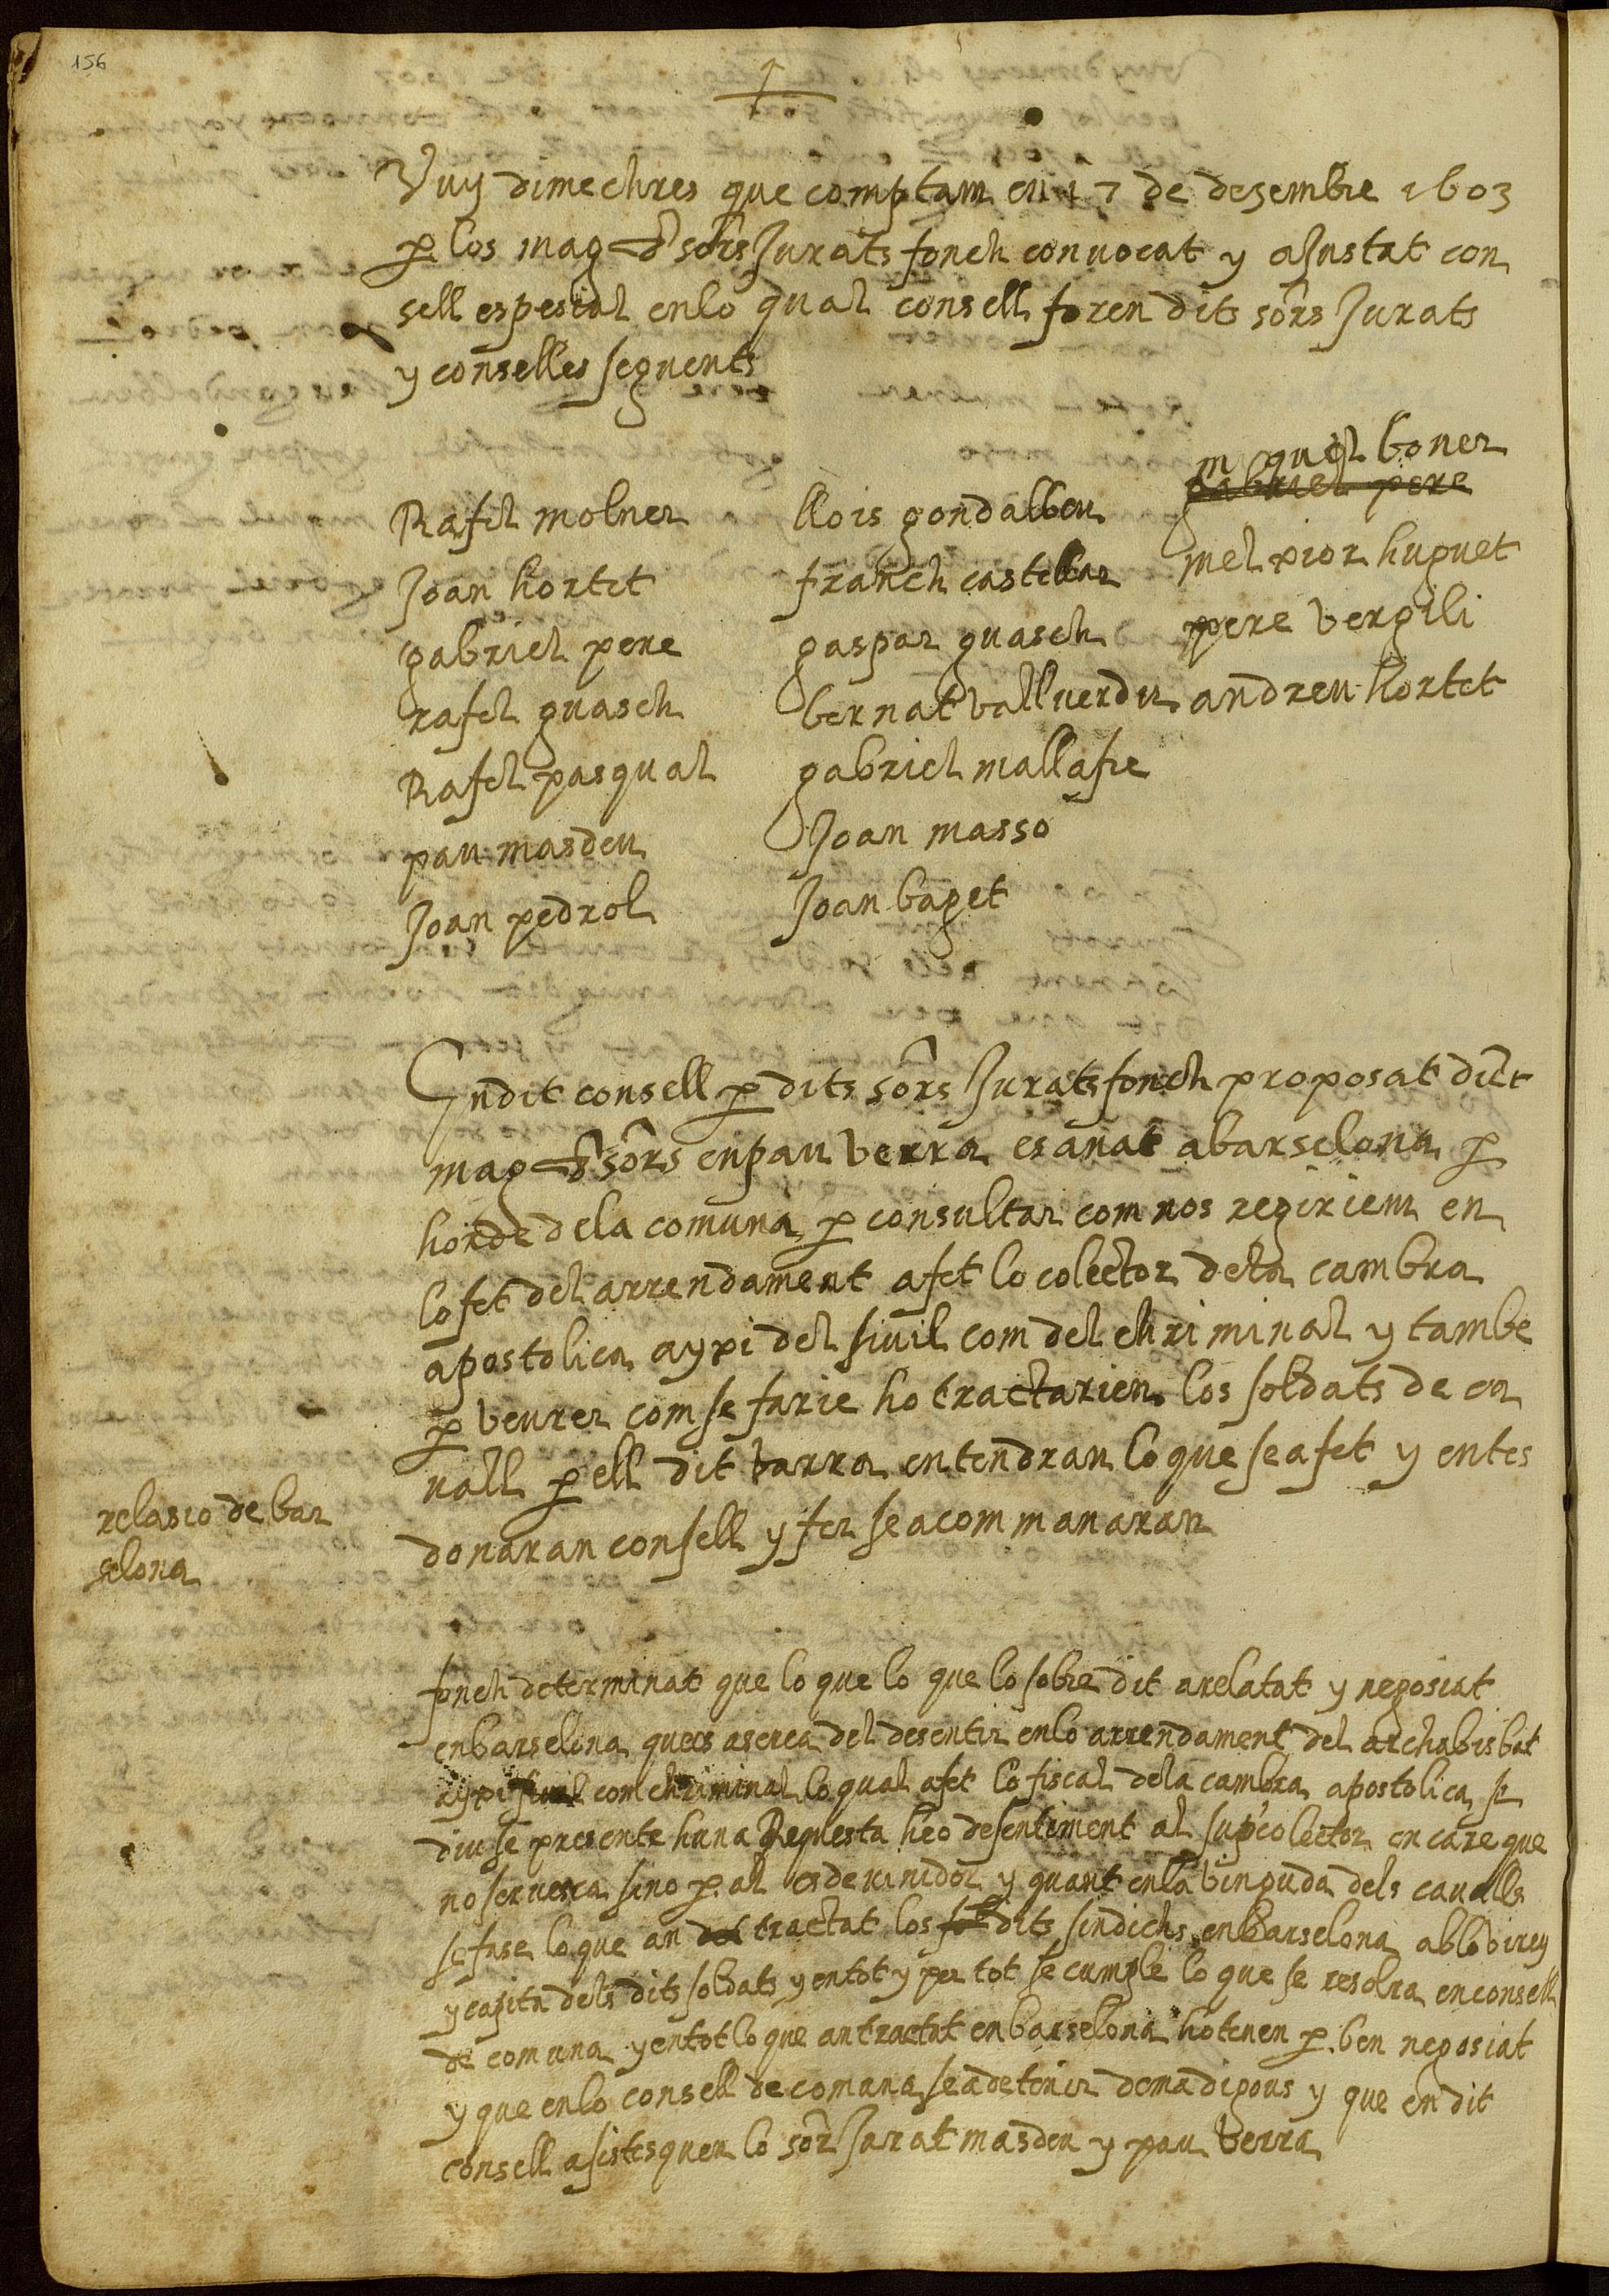 156
Vuy dimechres que comptam en 17 de dezembre 1603
p los mag sors Jurats fonch conuocat y aJustat con
sell espesial enlo qual consell foren dits sors Jurats
y conselles seguents
miquel boner
gabriel pere
Rafel molner
llois gondalbeu
melxior huguet
Joan hortet
franch castellar
pere vergili
gabriel pere
gaspar guasch
andreu hortet
rafel guasch
bernat vallverdu
Rafel pasqual
gabriel mallafre
pau masdeu
Joan masso
Joan pedrol
Joan baget
Endit consell p dits sors Jurats fonch proposat dient
mag sors enpau verra es anat abarselona p
horde dela comuna p consultar com nos regiriem en
lo fet del arrendament afet lo colector dela cambra
apostolica ayxi del siuil com del chriminal y tambe
p veurer com se farie ho tractarien los soldats de ca
uall p ell dit varra entendran lo que se afet y entes
donaran consell y fer se acommanaran
relasio de bar
selona
fonch determinat que lo que lo que lo sobre dit arelatat y negosiat
enbarselona ques aserca del desentir enlo arrendament del archabisbat
ayxi siuil com chriminal lo qual afet lo fiscal dela cambra apostolica se
diu se presente huna Requesta heo desentiment al supcolector encare que
no seruesca sino p al esdeuinidor y quant enla vinguda dels caualls
se fase lo que an tractat los dits sindichs enbarselona ablo virey
y capita dels dits soldats y entot y per tot se cumple lo que se resolra enconsell
de comuna y entot lo que an tractat enbarselona ho tenen p ben negosiat
y que enlo consell de comuna se adetenir dema dijous y que en dit
consell asistesquen lo sor Jurat masdeu y pau verra